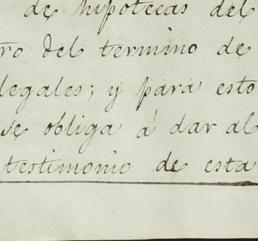 de hipotecas del
ro del termino de
legales; y para esto
se obliga á dar al
testimonio de esta